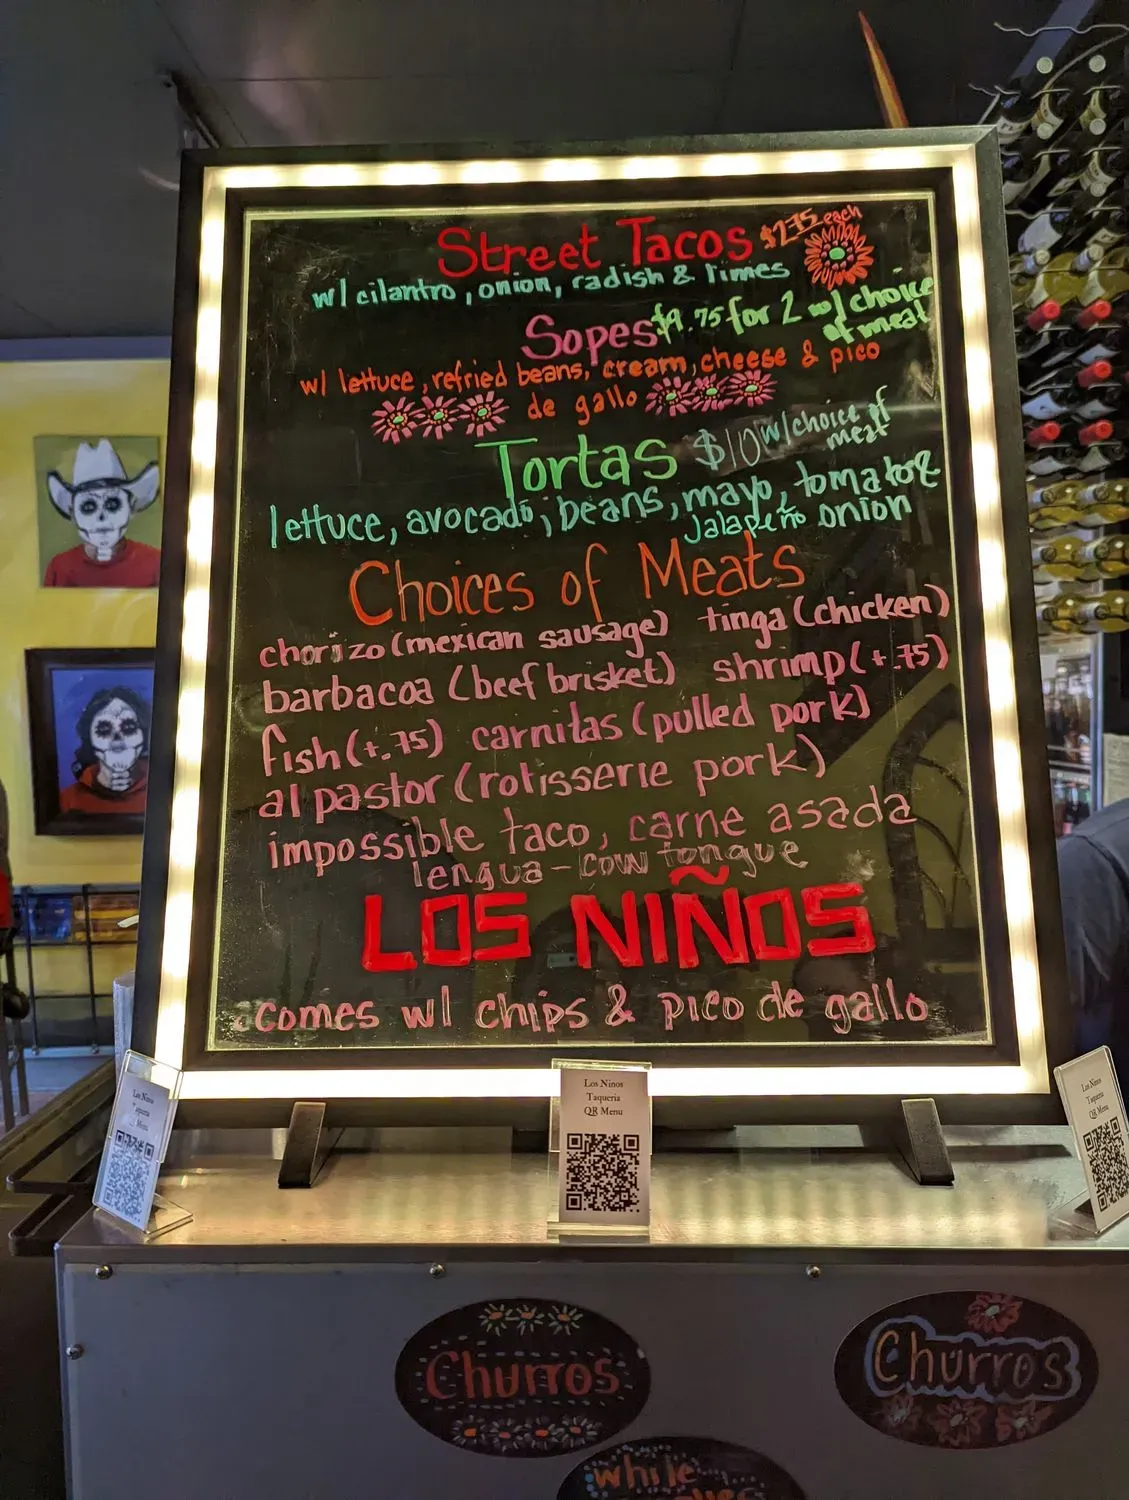 Street Tacos $2.75 each
w/ cilantro, onion, radish & limes
Sopes $9.75 for 2 w/ choice
of meat
w/ lettuce, refried beans, cream, cheese & pico
de gallo
Tortas $10 w/ choice of
meat
lettuce, avocado, beans, mayo, tomatoe
jalapeño onion
Choices of Meats
chorizo (mexican sausage) tinga (chicken)
barbacoa (beef brisket) shrimp (+.75)
fish (+.75) carnitas (pulled pork)
al pastor (rotisserie pork)
impossible taco, carne asada
lengua - cow tongue
LOS NIÑOS
comes w/ chips & pico de gallo
Los Ninos
Taqueria
Menu
Los Ninos
Taqueria
QR Menu
Los Ninos
Taqueria
QR Menu
Churros
Churros
while